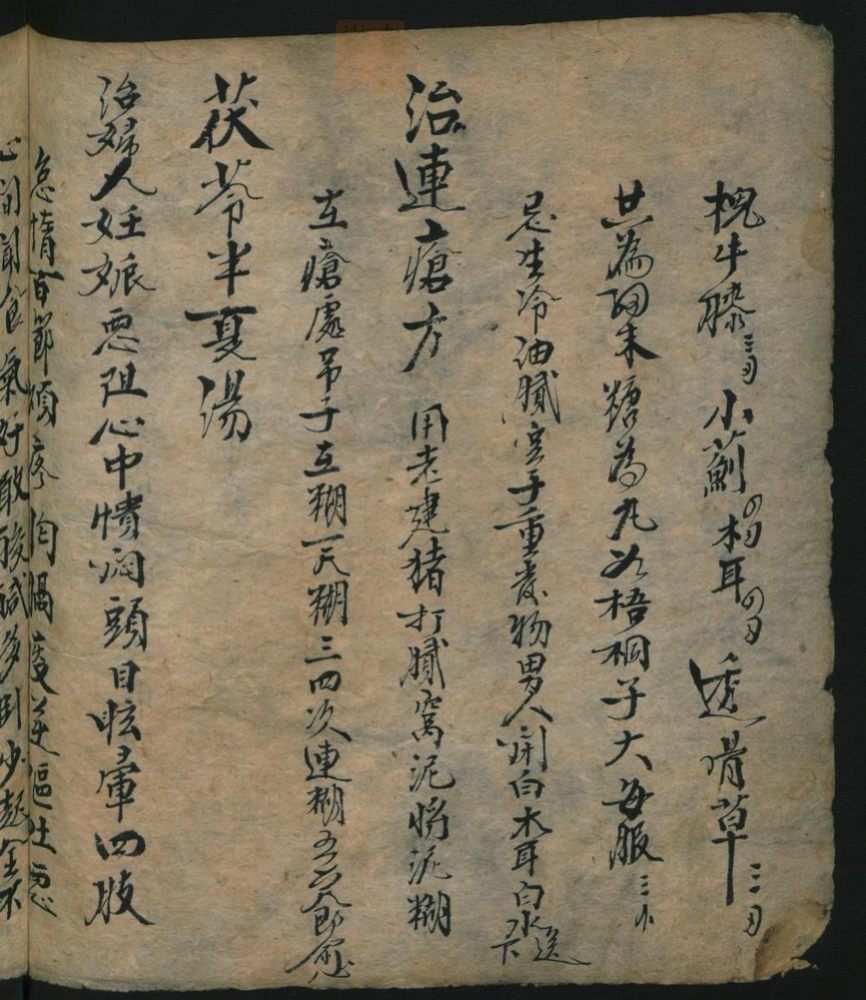 槐牛膝三刄 小薊四刄 木耳四刄 透骨草三刄
共為細末糖為丸如梧桐子大每服三小
忌生冷油膩室子重發物男人開白木耳白水送下
治連瘡方 用老建猪打膩窩泥將泥糊
在瘡處吊子在糊一天糊三四次連糊五六天即愈
茯苓半夏湯
治婦人妊娠恶阻心中憒悶頭目眩暈四肢
怠惰百節煩疼胸膈痰逆嘔吐恶
心聞食氣好啖酸鹹多卧少起全不